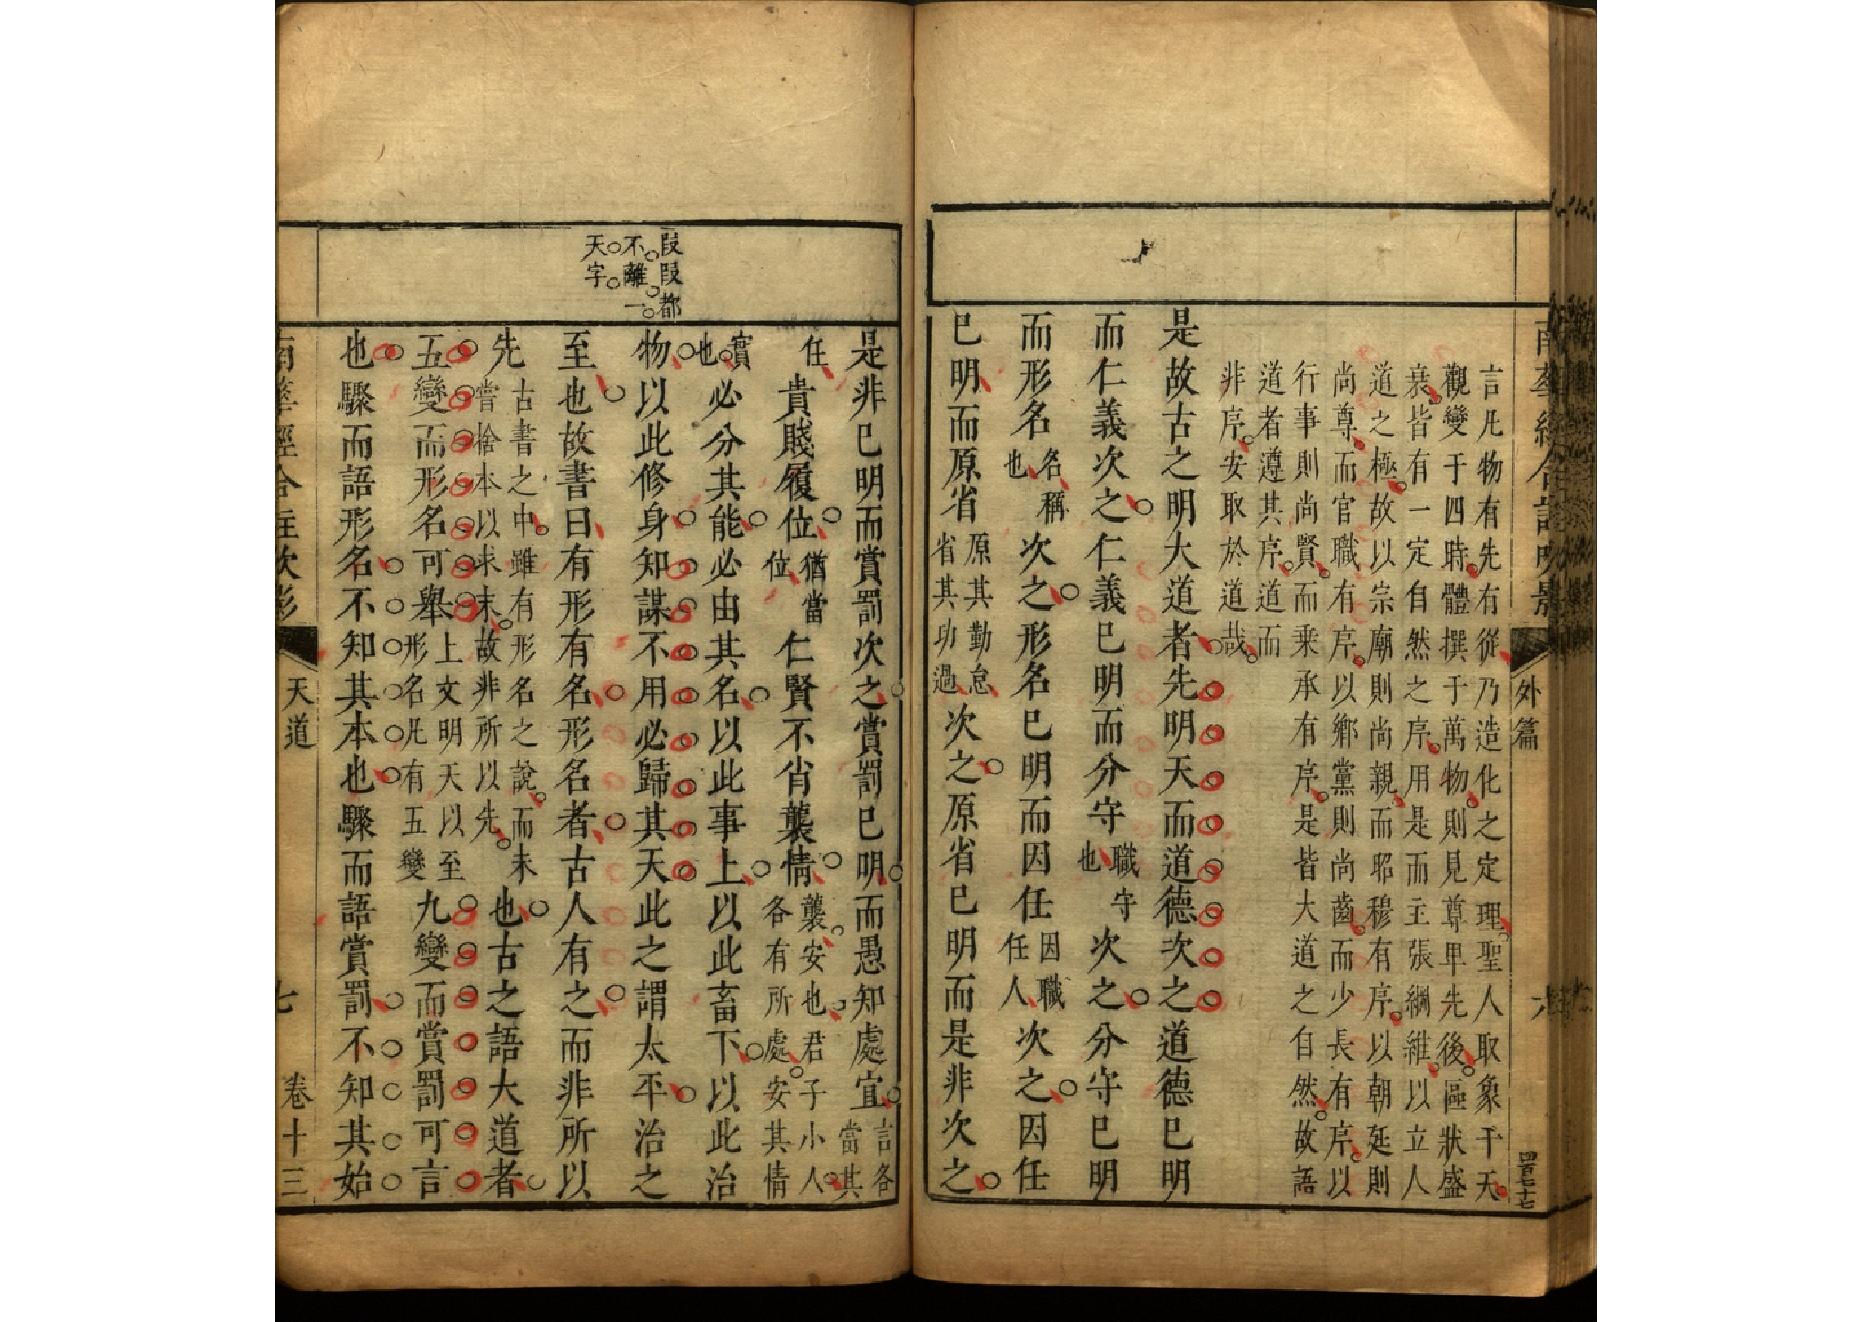 外篇
言凡物有先有從乃造化之定理聖人取象于天
觀變于四時體撰于萬物則見尊卑先後區狀盛
衰皆有一定自然之序用是而主張綱維以立人
道之極故以宗廟則尚親而昭穆有序以朝廷則
尚尊而官職有序以鄉黨則尚齒而少長有序以
行事則尚賢而乘承有序是皆大道之自然故語
道者遵其序道而
非序安取於道哉
是故古之明大道者先明天而道德次之道德已明
而仁義次之仁義已明而分守職守也次之分守已明
而形名名稱也次之形名已明而因任因職任人次之因任
已明而原省原其勤怠省其功過次之原省已明而是非次之
段段都
不離一
天字
是非已明而賞罰次之賞罰已明而愚知處宜言各當其
任貴賤履位猶當位仁賢不肖襲情襲安也君子小人各有所處安其情
實也必分其能必由其名以此事上以此畜下以此治
物以此修身知謀不用必歸其天此之謂太平治之
至也故書曰有形有名形名者古人有之而非所以
先古書之中雖有形名之說而未嘗捨本以求末故非所以先也古之語大道者
五變而形名可舉上文明天以至形名凡有五變九變而賞罰可言
也驟而語形名不知其本也驟而語賞罰不知其始
天道
七
卷十三